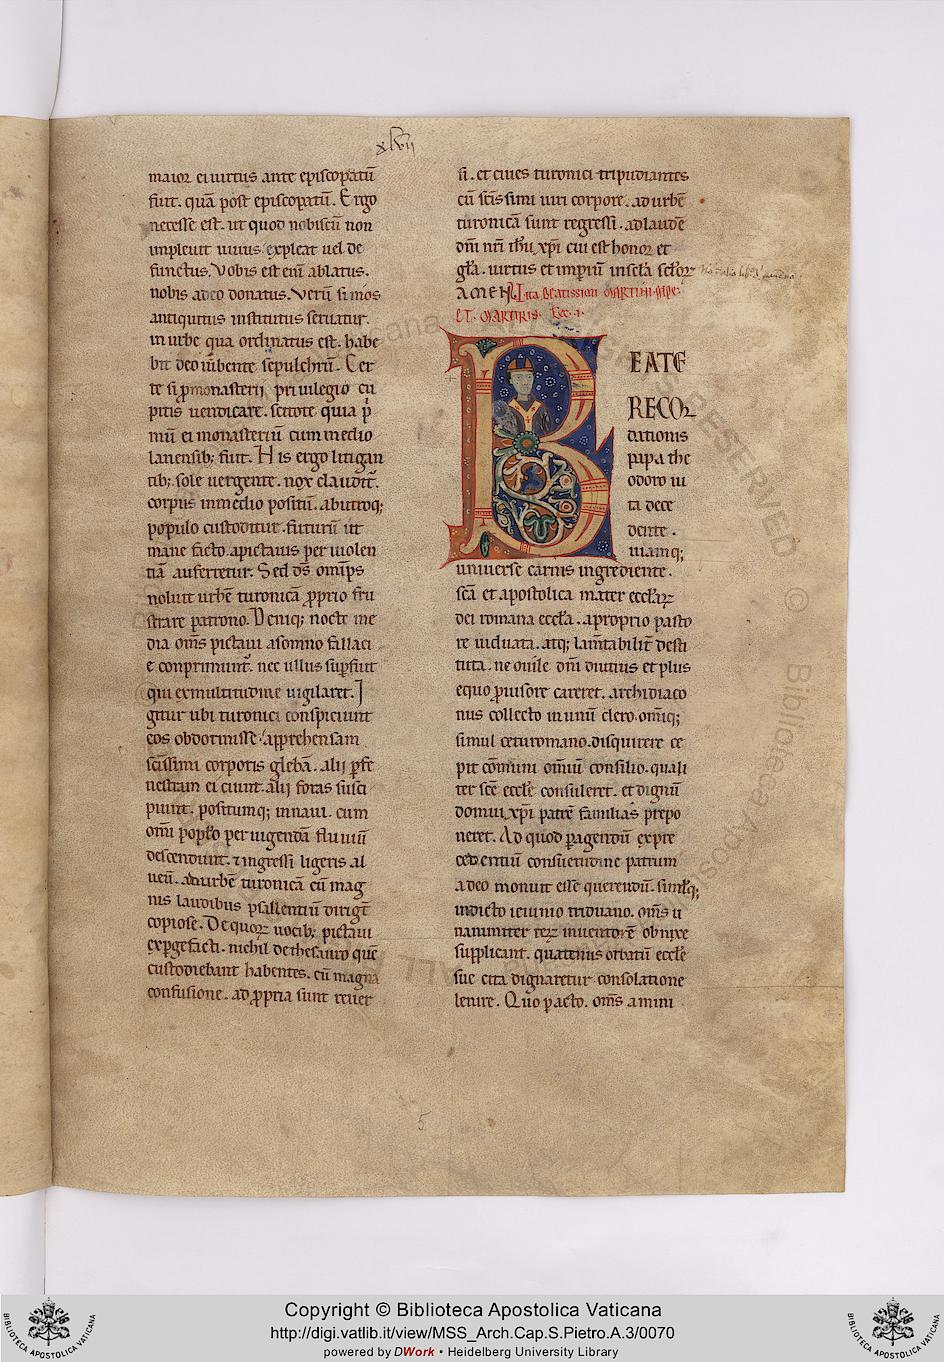 xlvii
maior ei uirtus ante episcopatū
fuit. quā post episcopatū. Ergo
necesse est. ut quod nobiscū non
impleuit uiuus expleat uel de
functus. Vobis est eni ablatus.
nobis adeo donatus. Verū si mos
antiquitus institutus seruatur.
in urbe qua ordinatus est. habe
bit deo iubente sepulchrū. Cer
te si p monasterii priuilegio cu
pitis uendicare. scitote quia p̄
mū ei monasteriū cum medio
lanensib; fuit. His ergo litigan
tib; sole uergente. nox claudit̄.
corpus in medio positū. ab utroq;
populo custoditur. futurū ut
mane facto. apictauis per uiolen
tiā auferretur. Sed ds̄ omīps
noluit urbē turonicā proprio fru
strare patrono. Deniq; nocte me
dia oms̄ pictaui a somno fallaci
e conprimunt̄. nec ullus supfuit
qui ex multitudine uigilaret. I
gitur ubi turonici conspiciunt
eos obdormisse. apprehensam
sc̄issimi corporis glebā. alii p fe
nestram eiciunt. alii foras susci
piunt. positumq; in naui. cum
omi poplo per uigennā fluuiū
descendunt. ⁊ ingressi ligeris al
ueū. ad urbē turonicā cū mag
nis laudibus psallentiū dirigt̄
copiose. De quoꝝ uocib; pictaui
expgefacti. nichil de thesauro quē
custodiebant habentes. cū magna
confusione. ad propria sunt reuer
si. et ciues turonici tripudiantes
cū sc̄issimi uiri corpore. ad urbē
turonicā sunt regressi. ad laudē
dn̄i nr̄i ihu xp̄i cui est honor et
gla. uirtus et imperiū in scla scloꝝ
AMEN. Vita beatissimi Martini pape.
ET MARTIRIS. Lec. i.
BEATE
RECOꝝ
dationis
papa the
odoro ui
ta dece
dente.
uiamq;
uniuerse carnis ingrediente.
sc̄a et apostolica mater eccl̄aꝝ
dei romana eccl̄a. a proprio pasto
re uiduata. atq; lamtabilit̄ desti
tuta. ne ouile dn̄i diutius et plus
equo puisore careret. archidiaco
nus collecto in unū clero. omiq;
simul cetu romano. disquirere ce
pit cōmuni omiū consilio. quali
ter sc̄e eccl̄e consuleret. et dignū
domui xp̄i patrē familias prepo
neret. Ad quod pagendū expre
cedentiū consuetudine patrum
a deo monuit esse querendū. simlq;
indicto ieiunio triduano. oms̄ u
nanimiter reꝝ inuentorē obnixe
supplicant. quatenus orbatū eccl̄e
sue cita dignaretur consolatione
lenire. Quo pacto. oms̄ a mini
5
Copyright © Biblioteca Apostolica Vaticana
http://digi.vatlib.it/view/MSS_Arch.Cap.S.Pietro.A.3/0070
powered by DWork • Heidelberg University Library
BIBLIOTECA APOSTOLICA VATICANA
BIBLIOTECA APOSTOLICA VATICANA